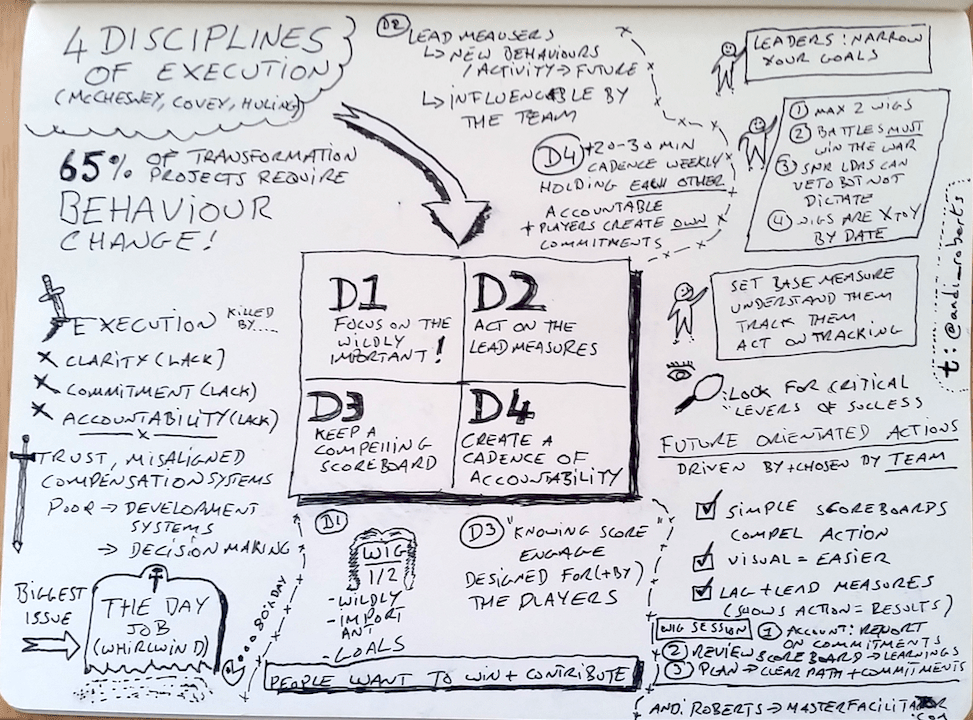 4 DISCIPLINES
OF EXECUTION
(McCHESNEY, COVEY, HULING)
65% OF TRANSFORMATION
PROJECTS REQUIRE
BEHAVIOUR
CHANGE!
EXECUTION KILLED
BY.....
X CLARITY (LACK)
X COMMITMENT (LACK)
X ACCOUNTABILITY (LACK)
X
TRUST, MISALIGNED
COMPENSATION SYSTEMS
POOR → DEVELOPMENT
SYSTEMS
→ DECISION MAKING
BIGGEST
ISSUE
THE DAY
JOB
(WHIRLWIND)
80% DAY
D2 LEAD MEAUSERS
↳ NEW BEHAVIOURS
/ACTIVITY → FUTURE
↳ INFLUENCABLE BY
THE TEAM
D4 +20-30 MIN
CADENCE WEEKLY
HOLDING EACH OTHER
ACCOUNTABLE
+ PLAYERS CREATE OWN
COMMITMENTS
D1
FOCUS ON THE
WILDLY
IMPORTANT!
D2
ACT ON THE
LEAD MEASURES
D3
KEEP A
COMPELLING
SCOREBOARD
D4
CREATE A
CADENCE OF
ACCOUNTABILITY
D1
WIG
1/2
-WILDLY
-IMPORT
ANT
-GOALS
D3 "KNOWING SCORE"
ENGAGE
DESIGNED FOR (+BY)
THE PLAYERS
PEOPLE WANT TO WIN + CONTRIBUTE
LEADERS: NARROW
YOUR GOALS
1 MAX 2 WIGS
2 BATTLES MUST
WIN THE WAR
3 SNR LDRS CAN
VETO BUT NOT
DICTATE
4 WIGS ARE X TO Y
BY DATE
t: @andi_roberts
SET BASE MEASURE
UNDERSTAND THEM
TRACK THEM
ACT ON TRACKING
: LOOK FOR CRITICAL
LEVERS OF SUCCESS
FUTURE ORIENTATED ACTIONS
DRIVEN BY + CHOSEN BY TEAM
SIMPLE SCOREBOARDS
COMPEL ACTION
VISUAL = EASIER
LAG + LEAD MEASURES
(SHOWS ACTION = RESULTS)
WIG SESSION 1 ACCOUNT: REPORT
ON COMMITMENTS
2 REVIEW SCOREBOARD → LEARNINGS
3 PLAN → CLEAR PATH + COMMITMENTS
ANDI ROBERTS → MASTERFACILITATOR
.COM